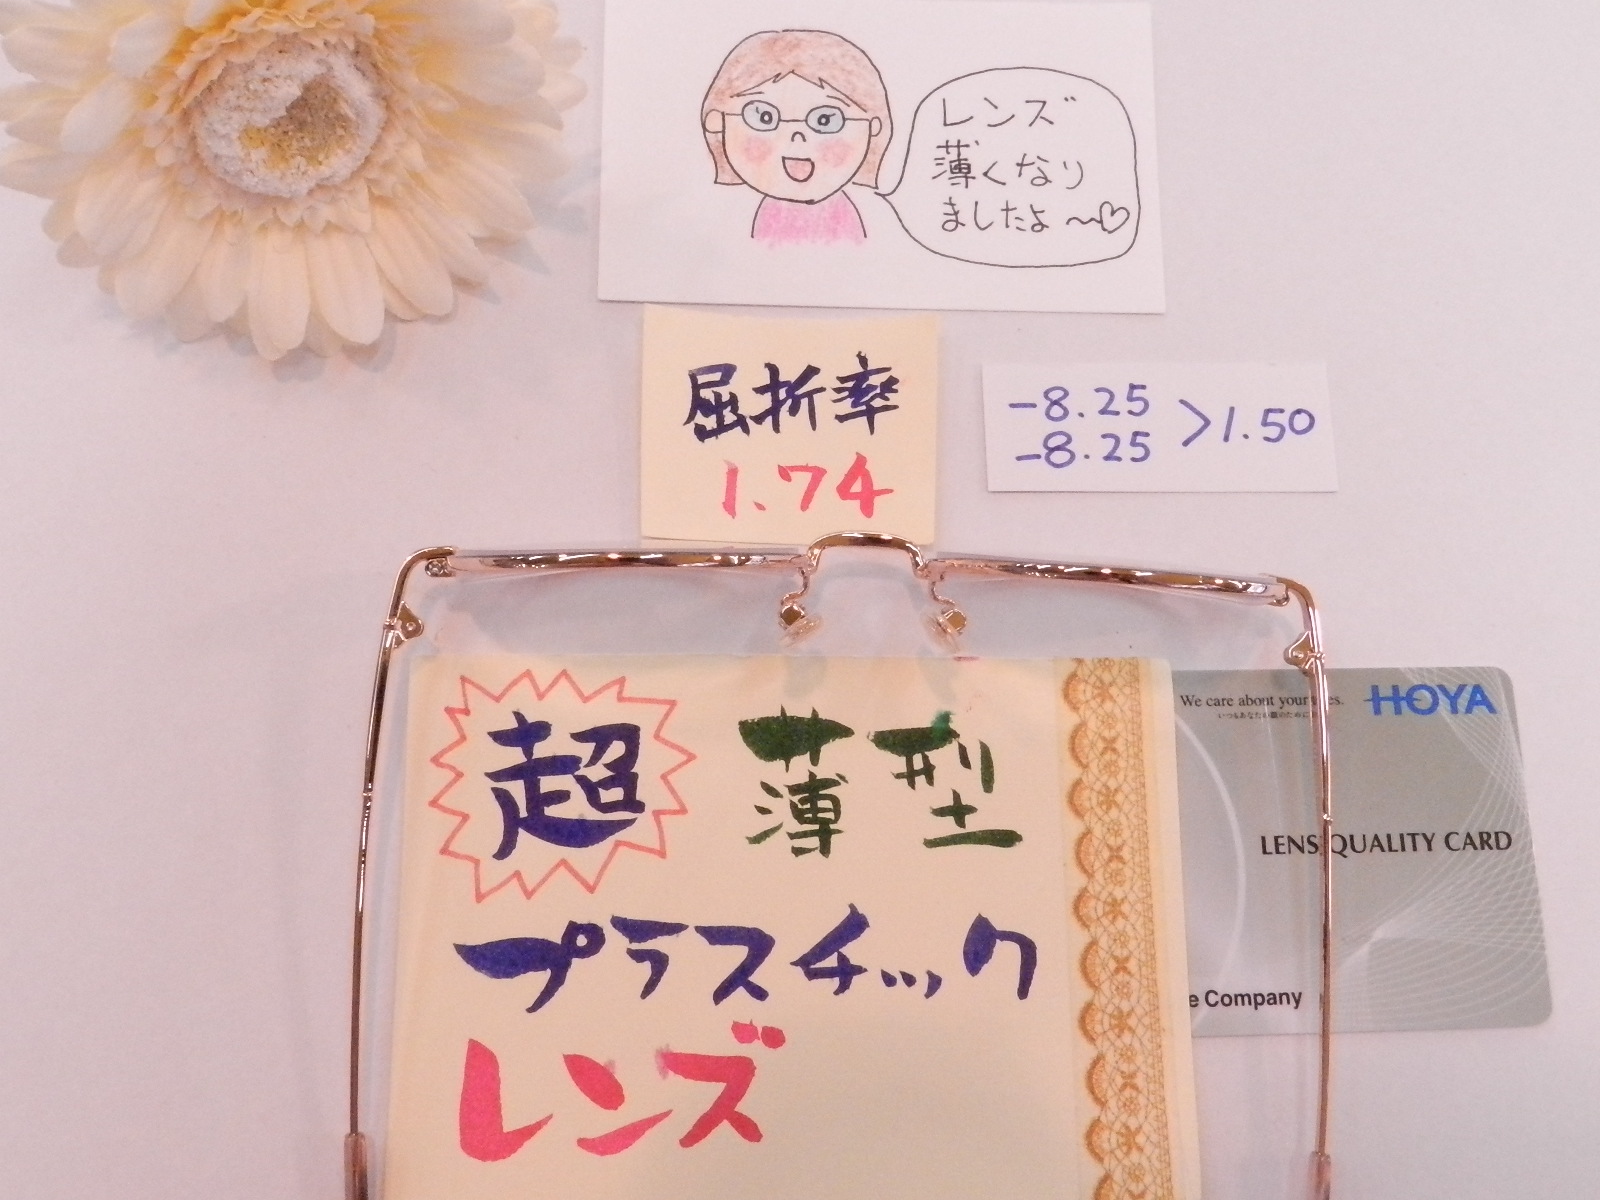 レンズ
薄くなり
ましたよ～♡
屈折率
1.74
-8.25
-8.25 >1.50
超 薄型
プラスチック
レンズ
We care about your
HOYA
LENS QUALITY CARD
e Company